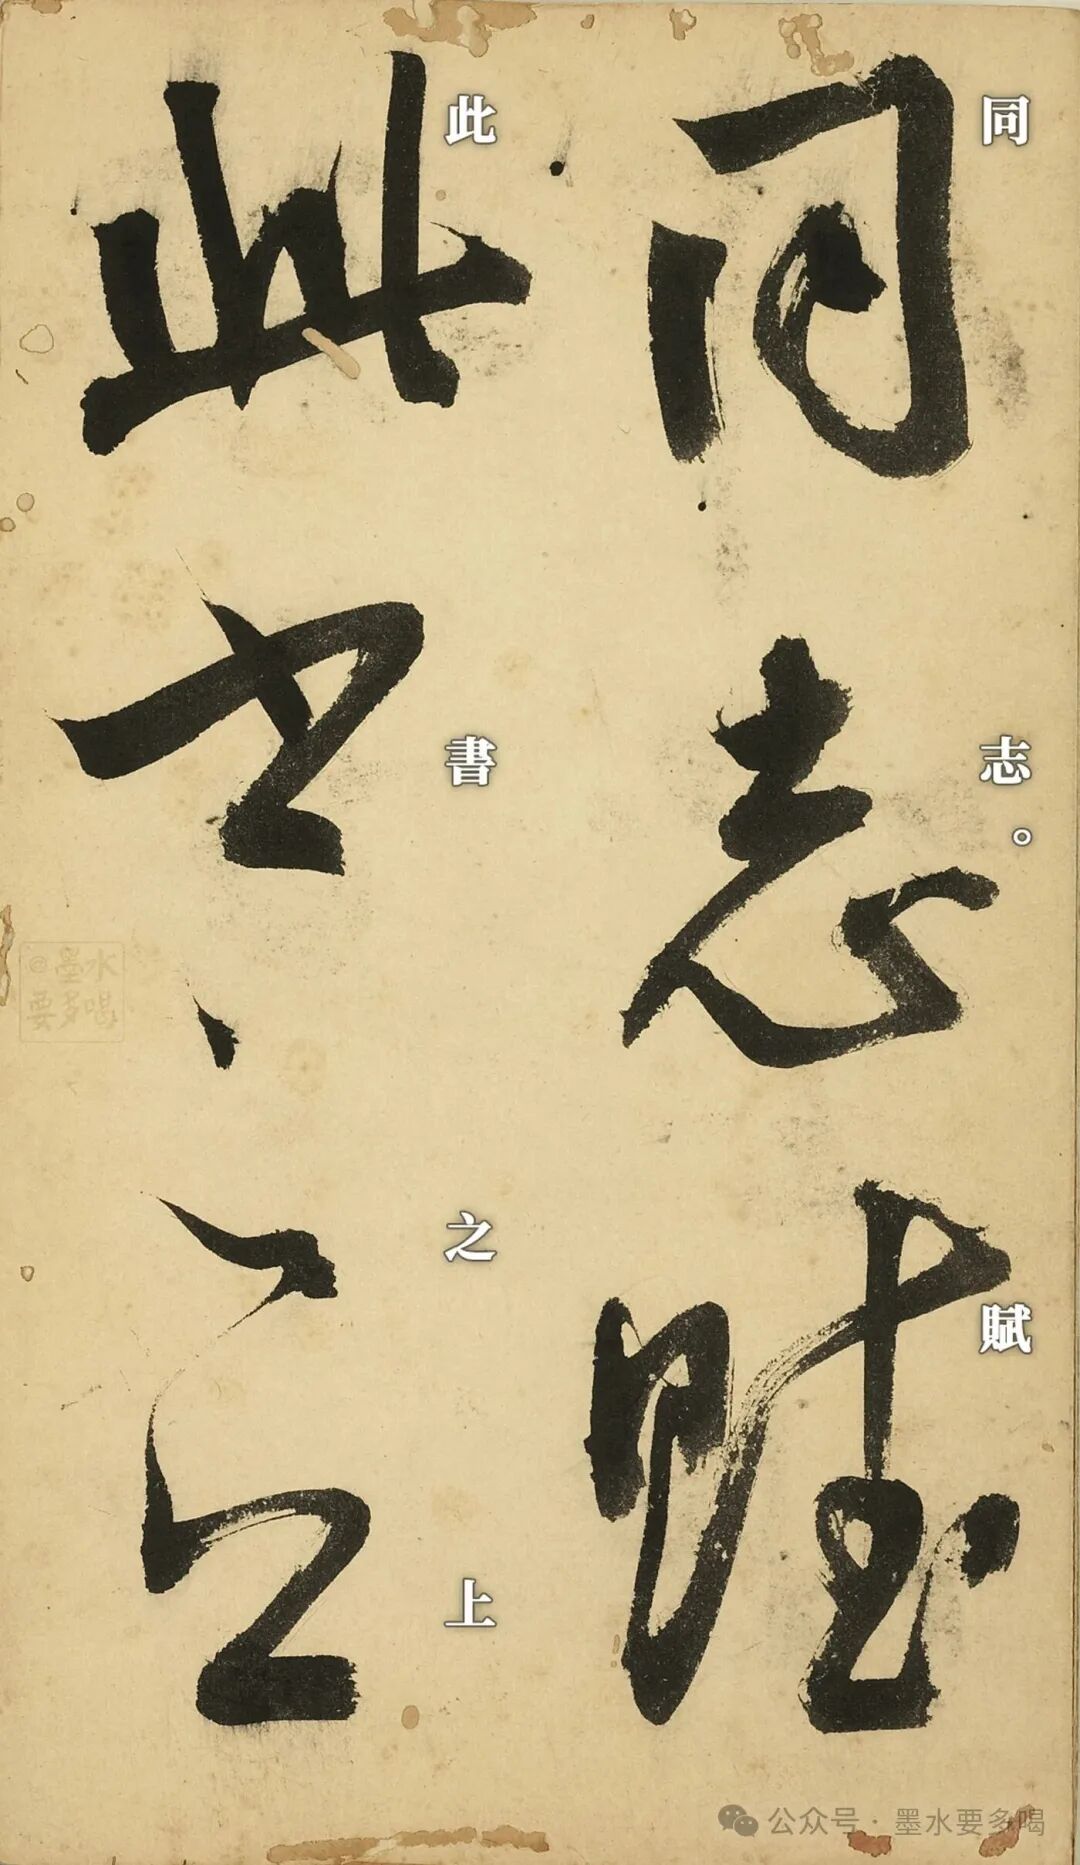 同志。賦
此書之上
@墨水
要多喝
公众号·墨水要多喝